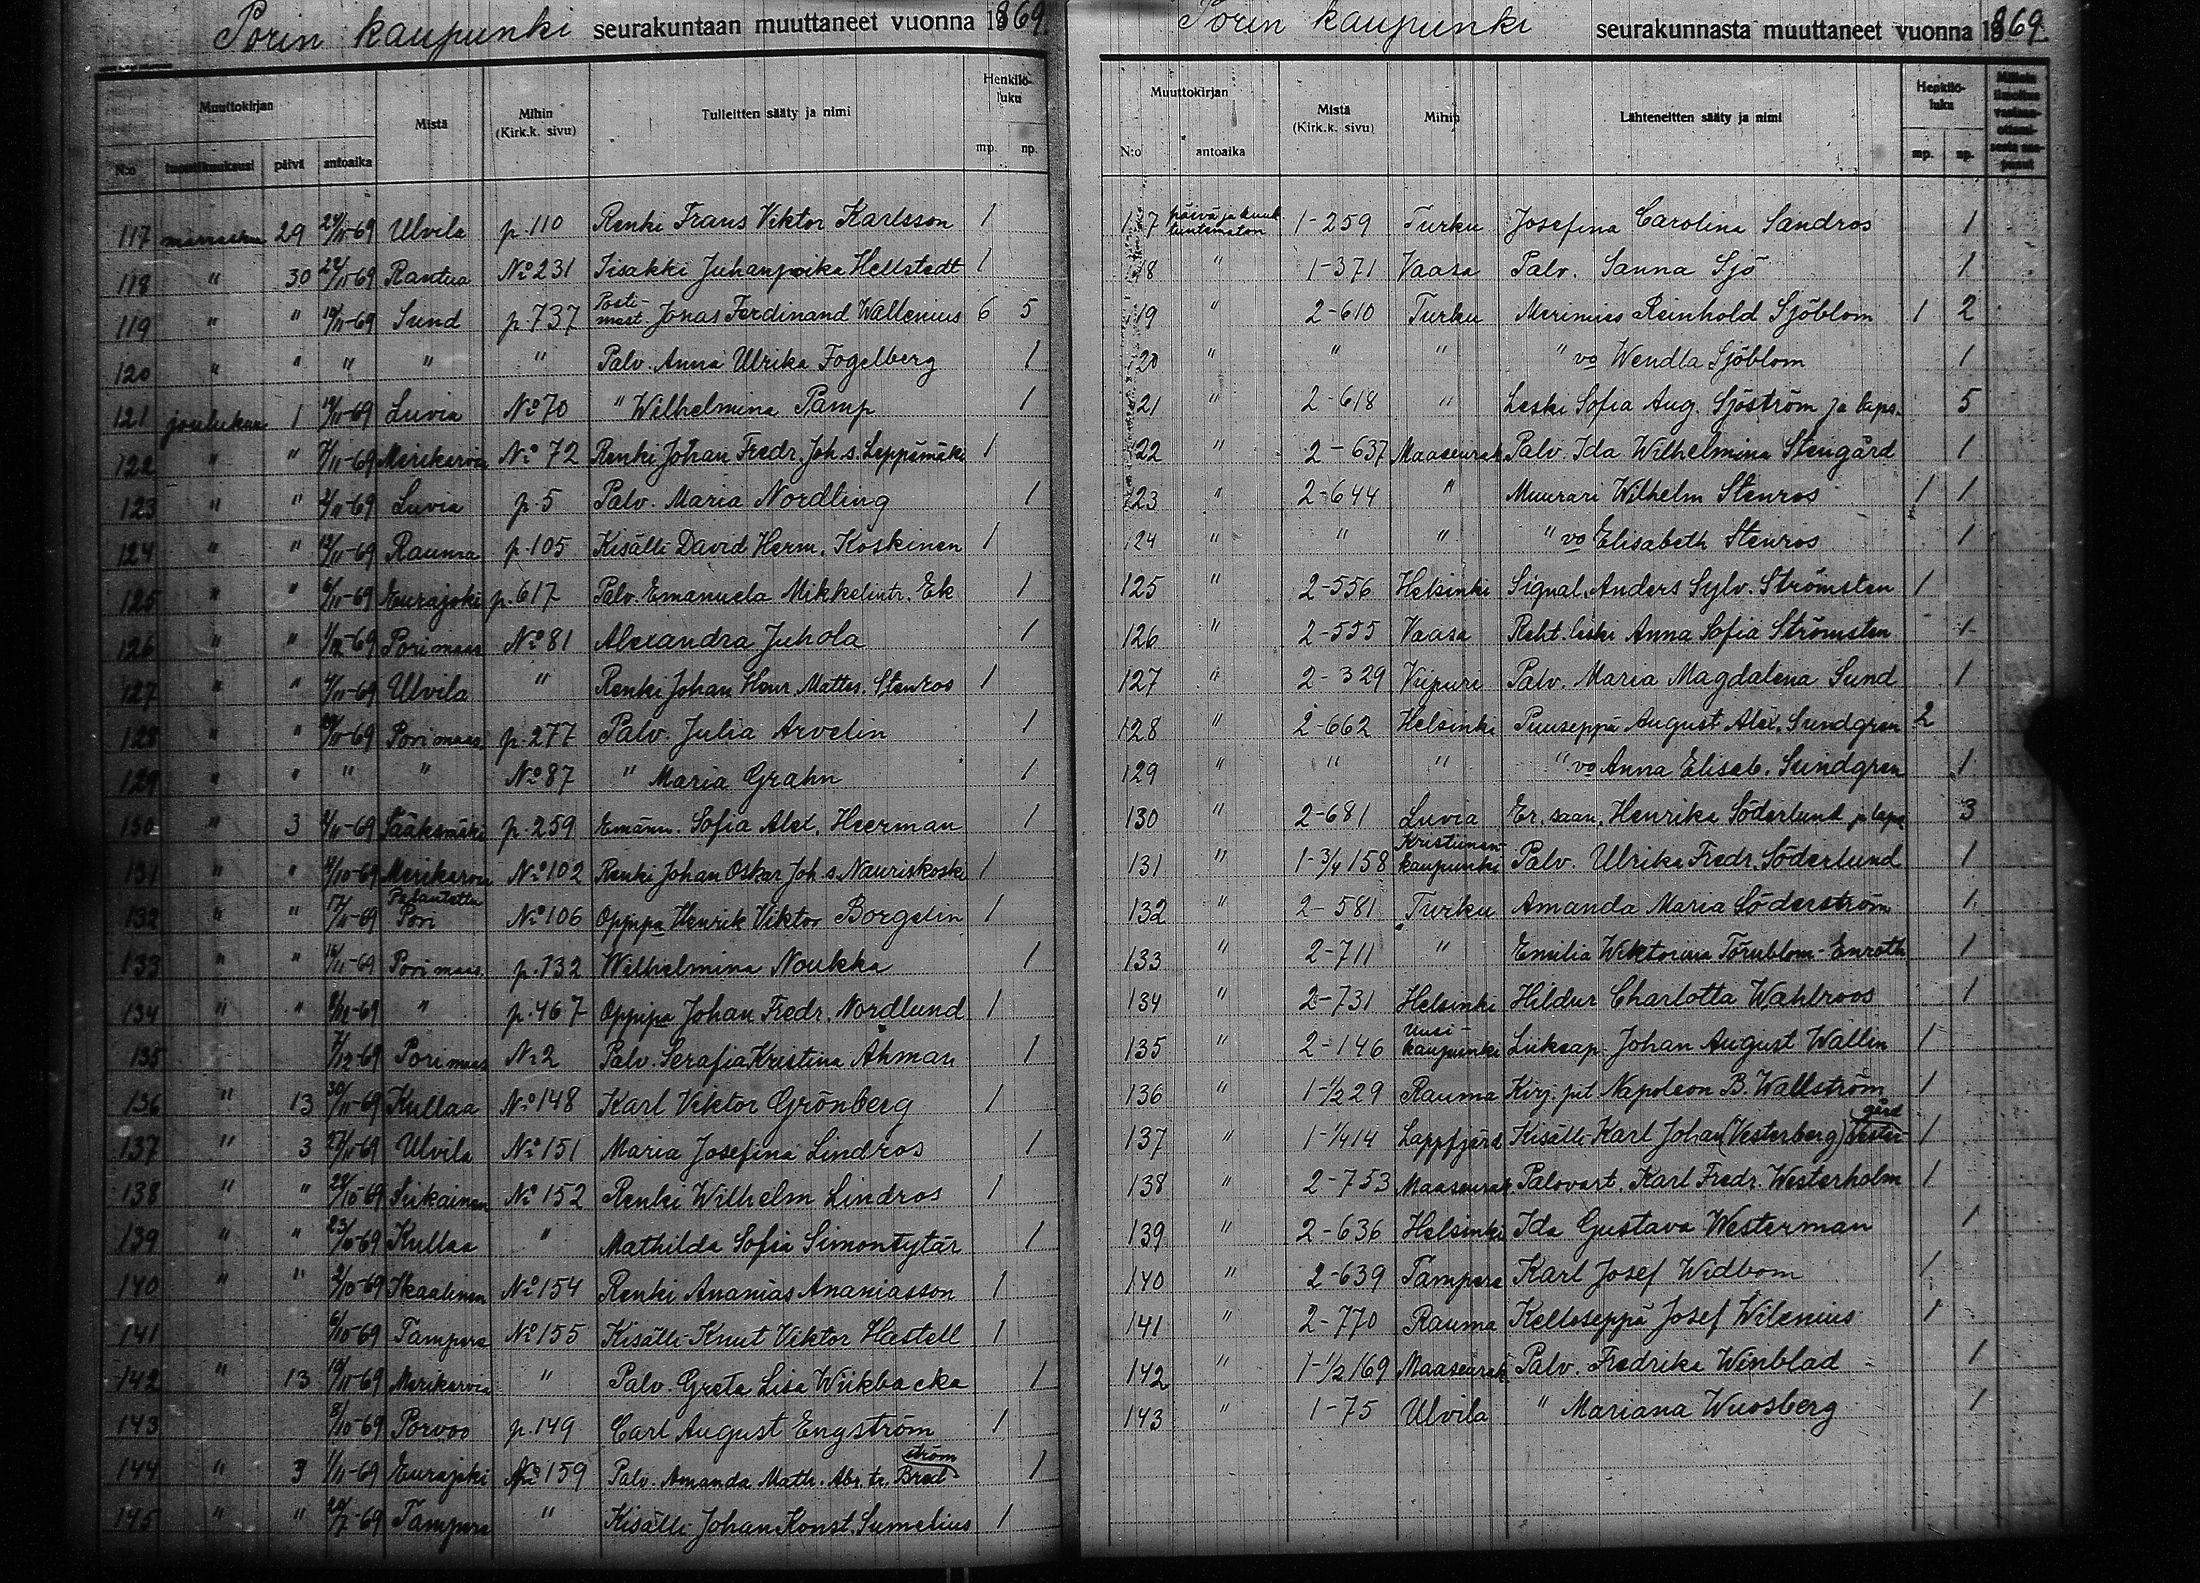 Porin kaupunki seurakuntaan muuttaneet vuonna 1869.
Muuttokirjan Mistä Mihin (Kirk.k. sivu) Tulleitten sääty ja nimi Henkilö-luku
N:o tuontikuukausi päivä antoaika mp. np.
117 marraskuu 29 24/11-69 Ulvila p. 110 Renki Frans Viktor Karlsson 1
118 " 30 /11-69 Rautua No 231 Iisakki Juhanpoika Hellstedt 1
119 " " 10/11-69 Sund p. 737 Posti-mest. Jonas Ferdinand Wallenius 6 5
120 " " " " " Palv. Anna Ulrika Fogelberg 1
121 joulukuu 1 19/11-69 Luvia No 70 " Wilhelmina Pamp 1
122 " " /11-69 Merikarvia No 72 Renki Johan Fredr. Joh. s. Leppämäki 1
123 " " /11-69 Luvia p. 5 Palv. Maria Nordling 1
124 " " /11-69 Rauma p. 105 Kisälli David Herm. Koskinen 1
125 " " 6/11-69 Eurajoki p. 617 Palv. Emanuela Mikkelintr. Ek 1
126 " " 1/12-69 Pori maas. No 81 Alexandra Juhola 1
127 " " /11-69 Ulvila " Renki Johan Henr. Matts. Stenros 1
128 " " /11-69 Pori maas. p. 277 Palv. Julia Arvelin 1
129 " " " " No 87 " Maria Grahn 1
130 " 3 /11-69 Sääksmäki p. 259 Emänn. Sofia Alex. Heerman 1
131 " " /10-69 Merikarvia No 102 Renki Johan Oskar Joh. s. Nauriskoski 1
132 " " 17/11-69 Palautettu Pori No 106 Oppipa Henrik Viktor Borgelin 1
133 " " 16/11-69 Pori maas. p. 732 Wilhelmina Noukka 1
134 " " -69 " p. 467 Oppipa Johan Fredr. Nordlund 1
135 /12-69 Pori maas No 2 Palv. Serafia Kristina Åhman 1
136 " 13 30/11-69 Kullaa No 148 Karl Viktor Grönberg 1
137 " 3 27/11-69 Ulvila No 151 Maria Josefina Lindros 1
138 " " 28/10-69 Siikainen No 152 Renki Wilhelm Lindros 1
139 " " 23/10-69 Kullaa " Mathilda Sofia Simontytär 1
140 " " 2/10-69 Ikaalinen No 154 Renki Ananias Ananiasson 1
141 6/10-69 Tampere No 155 Kisälli Knut Viktor Hastell 1
142 " 13 10/11-69 Merikarvia " Palv. Greta Lisa Wiikbacka 1
143 8/10-69 Porvoo p. 149 Carl August Engström 1
144 " 3 1/11-69 Eurajoki No 159 Palv. Amanda Math. Abr. tr. Bredström 1
145 " " -69 Tampere " Kisälli Johan Konst. Sumelius 1
Porin kaupunki seurakunnasta muuttaneet vuonna 1869.
Muuttokirjan Mistä (Kirk.k. sivu) Mihin Lähteneitten sääty ja nimi Henkilö-luku
N:o antoaika mp. np.
117 päivä ja kuuk. tuntematon 1-259 Turku Josefina Carolina Sandros 1
118 " 1-371 Vaasa Palv. Sanna Sjö 1
119 " 2-610 Turku Merimies Reinhold Sjöblom 1 2
120 " " " " vo Wendla Sjöblom 1
121 " 2-618 " Leski Sofia Aug. Sjöström ja laps. 5
122 " 2-637 Maaseurak Palv. Ida Wilhelmina Stengård 1
123 " 2-644 " Muurari Wilhelm Stenros 1 1
124 " " " " vo Elisabeth Stenros 1
125 " 2-556 Helsinki Signal. Anders Sylv. Strömsten 1
126 " 2-555 Vaasa Reht. leski Anna Sofia Strömsten 1
127 " 2-329 Viipuri Palv. Maria Magdalena Sund 1
128 " 2-662 Helsinki Puuseppä August Alex. Sundgren 2
129 " " " " vo Anna Elisab. Sundgren 1
130 " 2-681 Luvia Er. saan. Henrika Söderlund ja laps 3
131 " 1-3/4 158 Kristiinan-kaupunki Palv. Ulrika Fredr. Söderlund 1
132 " 2-581 Turku Amanda Maria Söderström 1
133 " 2-711 " Emilia Wiktorina Törnblom-Enroth 1
134 " 2-731 Helsinki Hildur Charlotta Wahlroos 1
135 " 2-146 Uusi-kaupunki Luksep. Johan August Wallin 1
136 " 1-1/2 29 Rauma Kirj. pit Napoleon B. Wallström 1
137 " 1-1/4 14 Lappfjärd Kisälli Karl Johan (Vesterberg) Vestergård 1
138 " 2-753 Maaseurak. Palovart. Karl Fredr. Westerholm 1
139 " 2-636 Helsinki Ida Gustava Westerman 1
140 " 2-639 Tampere Karl Josef Widbom 1
141 " 2-770 Rauma Kelloseppä Josef Wilenius 1
142 " 1-1/2 169 Maaseurak Palv. Fredrika Winblad 1
143 " 1-75 Ulvila " Mariana Wuosberg 1